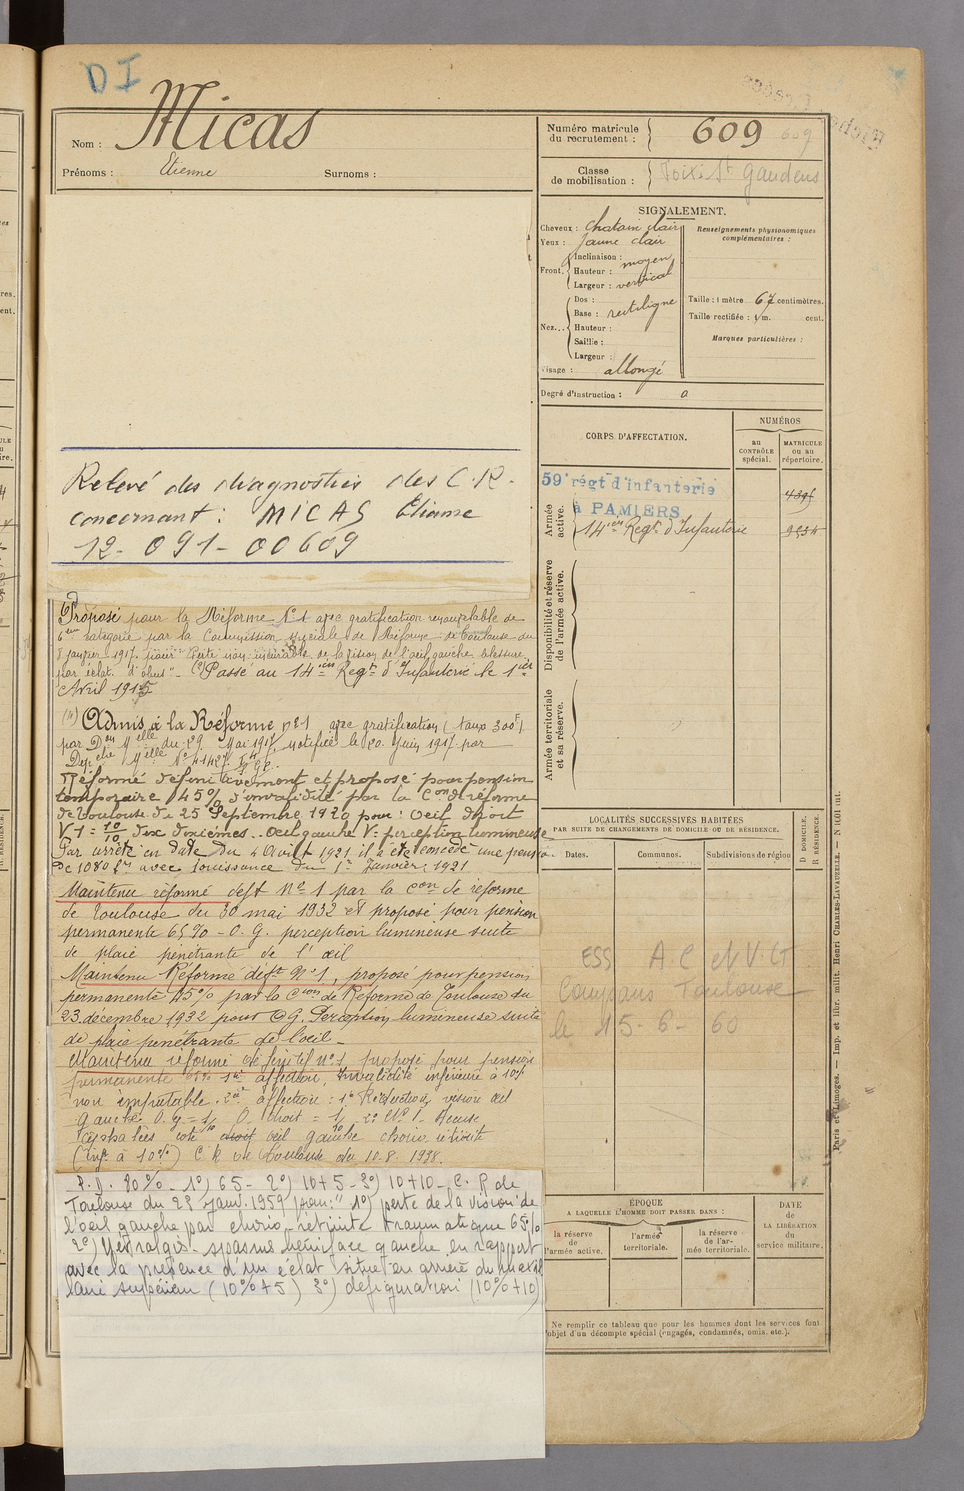 DI
Nom : Micas
Prénoms : Etienne Surnoms :
Numéro matricule du recrutement : 609 609
Classe de mobilisation : St Gaudens
SIGNALEMENT.
Cheveux : chatain clair
Yeux : jaune clair
Front. Inclinaison :
Hauteur : moyen
Largeur : vertical
Nez... Dos :
Base : rectiligne
Hauteur :
Saillie :
Largeur :
Visage : allongé
Renseignements physionomiques complémentaires :
Taille : 1 mètre 67 centimètres.
Taille rectifiée : 1 m. cent.
Marques particulières :
Degré d'instruction : a
CORPS D'AFFECTATION.
NUMÉROS
au CONTRÔLE spécial.
MATRICULE ou au répertoire.
Armée active.
59e régt d'infanterie
à PAMIERS
14ème Regt d'Infanterie
Disponibilité et réserve de l'armée active.
Armée territoriale et sa réserve.
Relevé des diagnostics des C.R.
concernant : MICAS Etienne
12-091-00609
Proposé pour la Réforme N°1 avec gratification renouvelable de
6ème catégorie par la Commission spéciale de Réforme de Toulouse du
8 Janvier 1917 pour "Perte de la vision de l'œil gauche blessure
par éclat d'obus" - Passé au 14ème Regt d'Infanterie le 1er
Avril 1915
Admis à la Réforme n°1 avec gratification (taux 300F)
par Don Melle du 29 Mai 1917, notifiée le 20 Juin 1917 par
Depche Melle N°
Réformé définitivement et proposé pour pension
temporaire 45% d'invalidité par la Con de réforme
de Toulouse du 25 Septembre 1920 pour : Oeil droit
V1 = 10/10 dix dixièmes. Oeil gauche V = perception lumineuse
Par arrêté en date du 4 Août 1921 il a été concédé une pension
de 1080 frs avec jouissance du 1er Janvier 1921
Maintenu réformé deft N°1 par la Con de réforme
de Toulouse du 30 mai 1932 et proposé pour pension
permanente 65% - O.G. perception lumineuse suite
de plaie pénétrante de l'œil
Maintenu Réformé déft N°1, proposé pour pension
permanente 45% par la Cion de Réforme de Toulouse du
23 décembre 1932 pour O G. Perception lumineuse suite
de plaie pénétrante de l'oeil -
Maintenu réformé définitif n°1 proposé pour pension
permanente 65% 1ère affection, Invalidité inférieure à 10%
non imputable. 2me affection : 1° Réduction vision œil
gauche
céphalées coté droit œil gauche chorio rétinite
(inf. à 10%) C R de Toulouse du 10-8-1938.
P.J. 80% - 1°) 65 - 2°) 10+5 - 3°) 10+10 - C.R de
Toulouse du 23 Janv. 1959 pour : " 1°) perte de la vision de
l'oeil gauche par chorio-rétinite traumatique 65%
2°) Névralgie - spasme hémiface gauche en rapport
avec la présence d'un éclat situé en arrière du maxil
laire supérieur (10% + 5) 3°) défiguration (10% + 10)
LOCALITÉS SUCCESSIVES HABITÉES
PAR SUITE DE CHANGEMENTS DE DOMICILE OU DE RÉSIDENCE.
Dates. Communes. Subdivisions de région
D DOMICILE.
R RÉSIDENCE.
ESS A.C et V.GT
Compans Toulouse
le 15-6-60
ÉPOQUE
A LAQUELLE L'HOMME DOIT PASSER DANS :
la réserve de l'armée active.
l'armée territoriale.
la réserve de l'armée territoriale.
DATE de LA LIBÉRATION du service militaire.
Ne remplir ce tableau que pour les hommes dont les services font
l'objet d'un décompte spécial (engagés, condamnés, omis, etc.).
Paris et Limoges. — Imp. et libr. milit. Henri CHARLES-LAVAUZELLE.